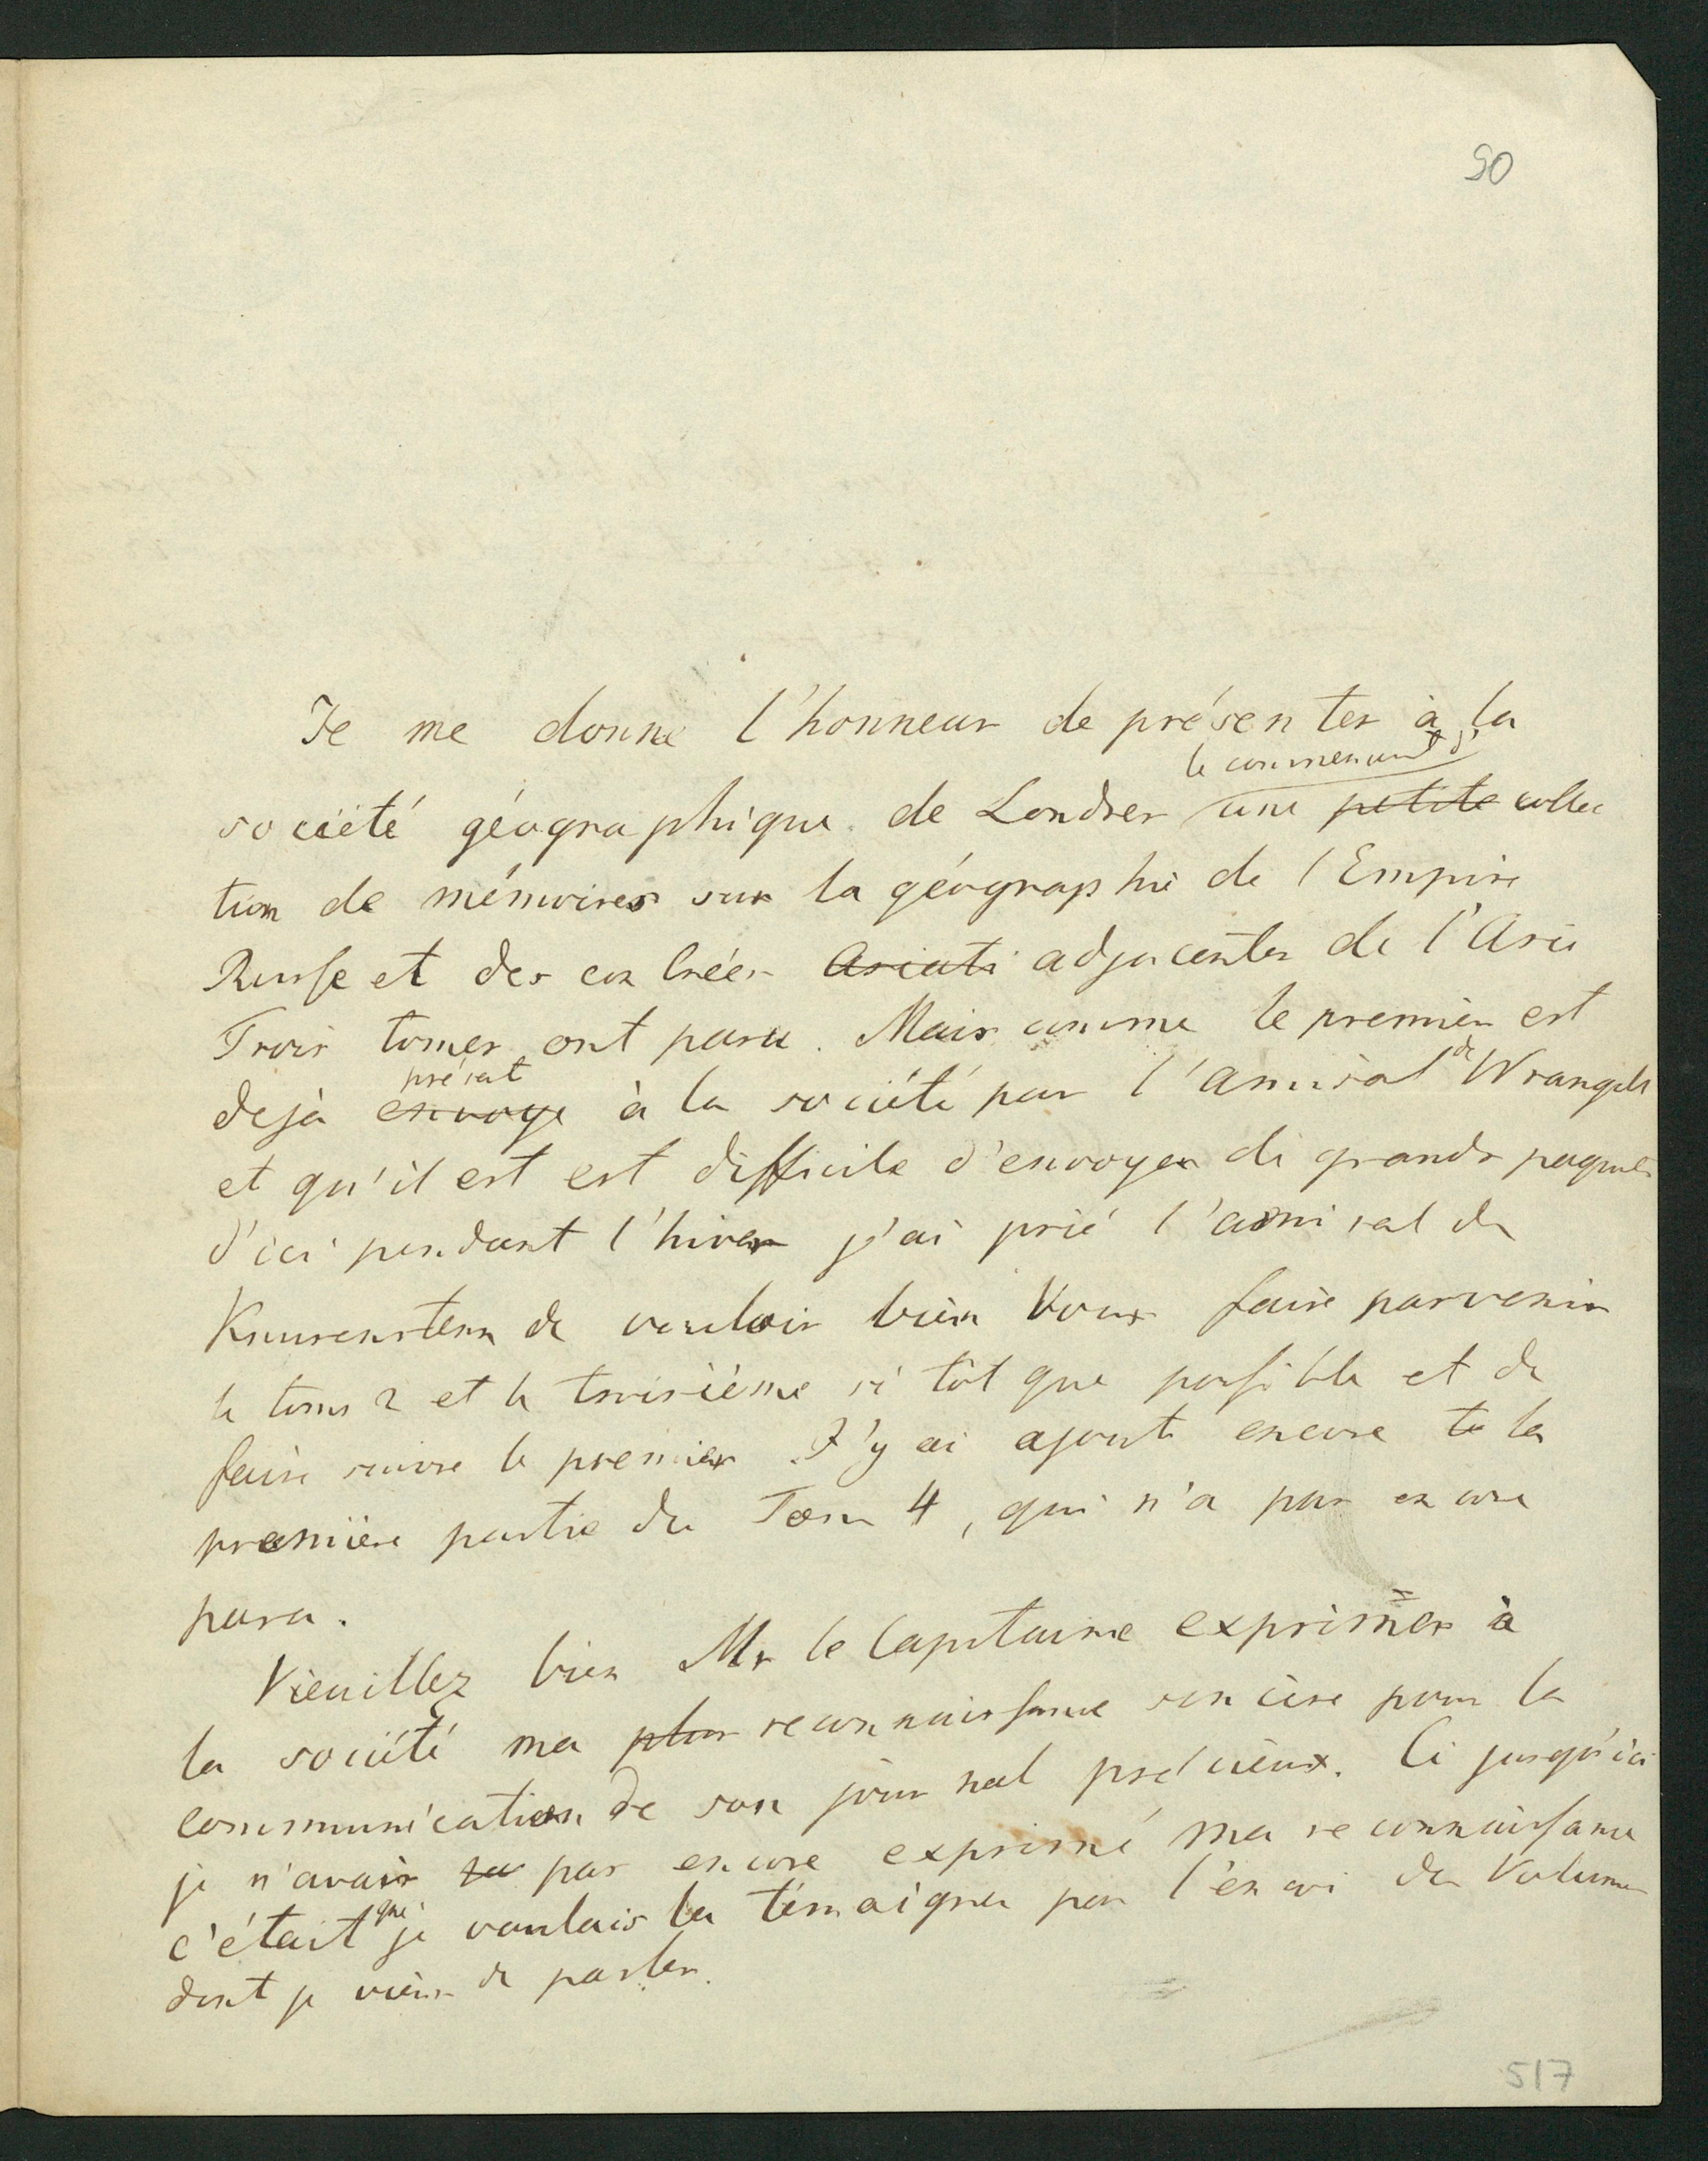 90
Je me donne l'honneur de présenter à la
le commencement d'
société géographique de Londres une petite collec
tion de mémoires sur la géographie de l'Empire
Russe et des contrées Asiati adjacentes de l'Asie
Trois tomes ont paru. Mais comme le premier est
présent
dejà envoye à la société par l'amiral de Wrangell
et qu'il est est difficile d'envoyer de grands paquets
d'ici pendant l'hiver j'ai prié l'amiral de
Krusenstern de vouloir bien Vous faire parvenir
le tome 2 et le troisième si tôt que possible et de
faire suivre le premier. J'y ai ajouté encore la
première partie du Tom 4, qui n'a pas encore
paru.
Vieuillez bien Mr le Capitaine exprimer à
la société ma plus reconnaissance sincère pour la
communication de son journal précieux. Ci jusqu'ici
je n'avais pas encore exprimé ma reconnaissance
que
c'était je voulais la témoigner par l'envoi du Volume
dont je viens de parler.
517